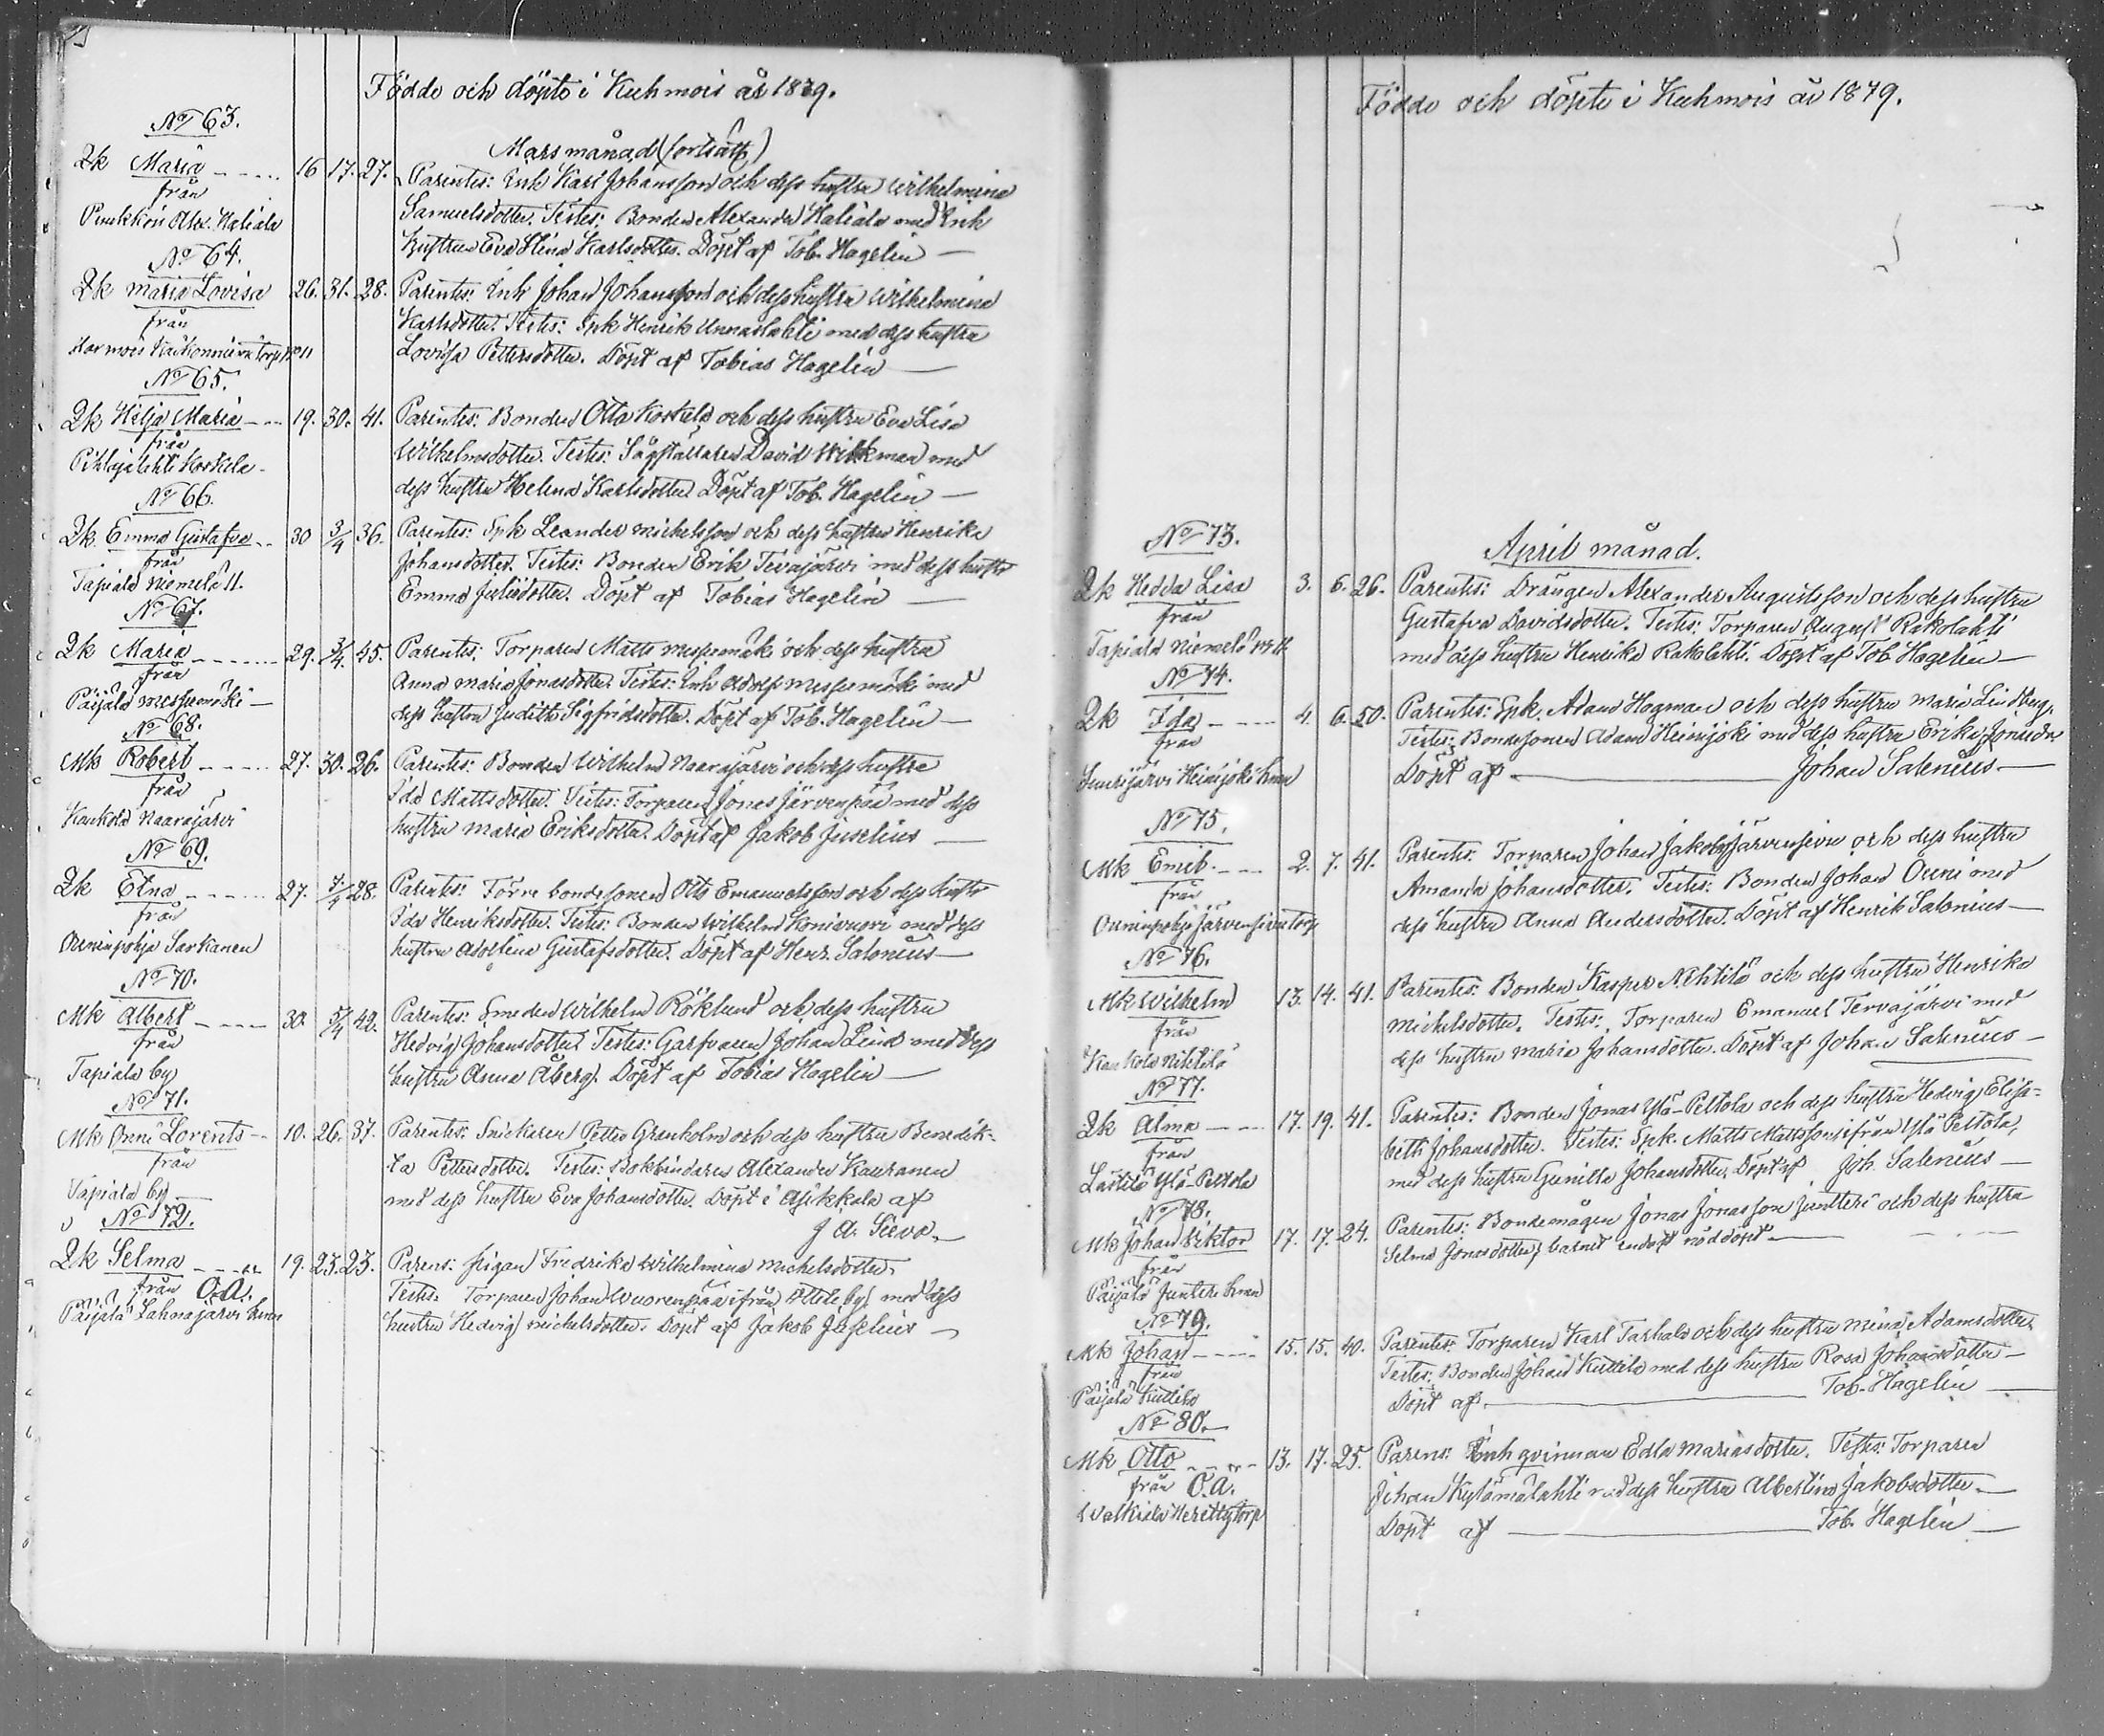 Födde och döpte i Kuhmois år 1879.
Mars månad (fortsätt)
No 63.
Qk Maria 16 17. 27. Parentes: Inh Karl Johansson och dess hustru Wilhelmina
från Samuelsdotter. Testes: Bonden Alexander Haliala med Inh
Puukkois Alex. Haliala hustrun Eva Stina Karlsdotter. Döpt af Tob. Hagelin
No 64.
Qk Maria Lovisa 26. 31. 28. Parentes: Inh Johan Johansson och dess hustru Wilhelmina
från Karlsdotter. Testes: Spk Henrik Unnaslahti med dess hustru
Harmois torp No 11 Lovisa Pettersdotter. Döpt af Tobias Hagelin
No 65.
Qk Hilja Maria 19. 30. 41. Parentes: Bonden Otto Koskela och dess hustru Eva Lisa
från Wilhelmsdotter. Testes: Sågställaren David Wikman med
Pihlajalahti Koskela dess hustru Helena Karlsdotter Döpt af Tob. Hagelin
No 66.
Qk Emma Gustafva 30 3/4 36. Parentes: Spk Leander Michelsson och dess hustru Henrika
från Johansdotter. Testes: Bonden Erik Tervajärvi med dess hustru
Tapiala Niemelä 11. Emma Juliidotter. Döpt af Tobias Hagelin
No 67.
Qk Maria 29. 3/4. 45. Parentes: Torparen Matts Messumäki och dess hustru
från Anna Maria Jonasdotter. Testes: Inh Adolf Messumäki med
Päijälä Messumäki dess hustru Judith Sigfridsdotter. Döpt af Tob. Hagelin
No 68.
Mk Robert 27. 30. 26. Parentes: Bonden Wilhelm Naarajärvi och dess hustru
från Ida Mattsdotter. Testes: Torparen Jonas Järvenpää med dess
Kaukola Naarajärvi hustru Maria Eriksdotter. Döpt af Jakob Juselius
No 69.
Qk Etna 27. 7/4 28. Parentes: Förre bondesonen Otto Emanuelsson och dess hustru
från Ida Henriksdotter. Testes: Bonden Wilhelm Konivuori med dess
Ouninpohja Sarkanen hustru Adolfina Gustafsdotter. Döpt af Henr. Salonius
No 70.
Mk Albert 30. 5/4 42. Parentes: Smeden Wilhelm Röklund och dess hustru
från Hedvig Johansdotter. Testes: Garfvaren Johan Lind med dess
Tapiala by hustru Anna Åberg. Döpt af Tobias Hagelin
No 71.
Mk Onni Lorents 10. 26. 37. Parentes: Snickaren Petter Granholm och dess hustru Benedik-
från ta Pettersdotter. Testes: Bokbindaren Alexander Kauranen
Tapiala by med dess hustru Eva Johansdotter. Döpt i Asikkala af
J. A. Savo.
No 72.
Qk Selma 19. 23. 23. Parens: Pigan Fredrika Wilhelmina Michelsdotter.
från O.A. Testes. Torparen Johan Wuorenpää ifrån by med dess
Päijälä Lahnajärvi hustru Hedvig Michelsdotter. Döpt af Jakob Juselius
Födde och döpte i Kuhmois år 1879.
April månad.
No 73.
Qk Hedda Lisa 3. 6. 26. Parentes: Drängen Alexander Augustsson och dess hustru
från Gustafva Davidsdotter. Testes: Torparen August Rakolahti
Tapiala Niemelä No 11 med dess hustru Henrika Rakolahti. Döpt af Tob. Hagelin
No 74.
Qk Ida 4. 6. 50. Parentes: Spk. Adam Hagman och dess hustru Maria Lindberg.
från Testes: Bondesonen Adam Heinijoki med dess hustru Erika Jonasdr
Heinijoki Döpt af Johan Salenius
No 75.
Mk Emil. 2. 7. 41. Parentes: Torparen Johan Jakobss. Järvensivu och dess hustru
från Amanda Johansdotter. Testes: Bonden Johan Ouni med
Ouninpohja Järvensivu torp dess hustru Anna Andersdotter. Döpt af Henrik Salonius
No 76.
Mk Wilhelm 13. 14. 41. Parentes: Bonden Kasper Nihtilä och dess hustru Henrika
från Michelsdotter. Testes: Torparen Emanuel Tervajärvi med
Kaukola Nihtilä dess hustru Maria Johansdotter. Döpt af Johan Salenius
No 77.
Qk Alma 17. 19. 41. Parentes: Bonden Jonas Ylä-Peltola och dess hustru Hedvig Elisa-
från beth Johansdotter. Testes: Spk. Matts Mattsson ifrån Ylä Peltola,
Lästilä Ylä-Peltola med dess hustru Gunilla Johansdotter. Döpt af Joh. Salenius
No 78.
Mk Johan Viktor 17. 17. 24. Parentes: Bondemågen Jonas Jonasson Juntteri och dess hustru
från Selma Jonasdotter; barnet endast nöddöpt.
Päijälä
No 79.
Mk Johan 15. 15. 40. Parentes: Torparen Karl Tarhala och dess hustru Mina Adamsdotter.
från Testes: Bonden Johan Kuttila med dess hustru Rosa Johansdotter
Päijälä Kuttila Döpt af Tob. Hagelin
No 80.
Mk Otto 13. 17. 25. Parens: Inh qvinnan Edla Mariasdotter. Testes: Torparen
från O.A. Johan Kylämälahti med dess hustru Albertina Jakobsdotter.
torp Döpt af Tob. Hagelin